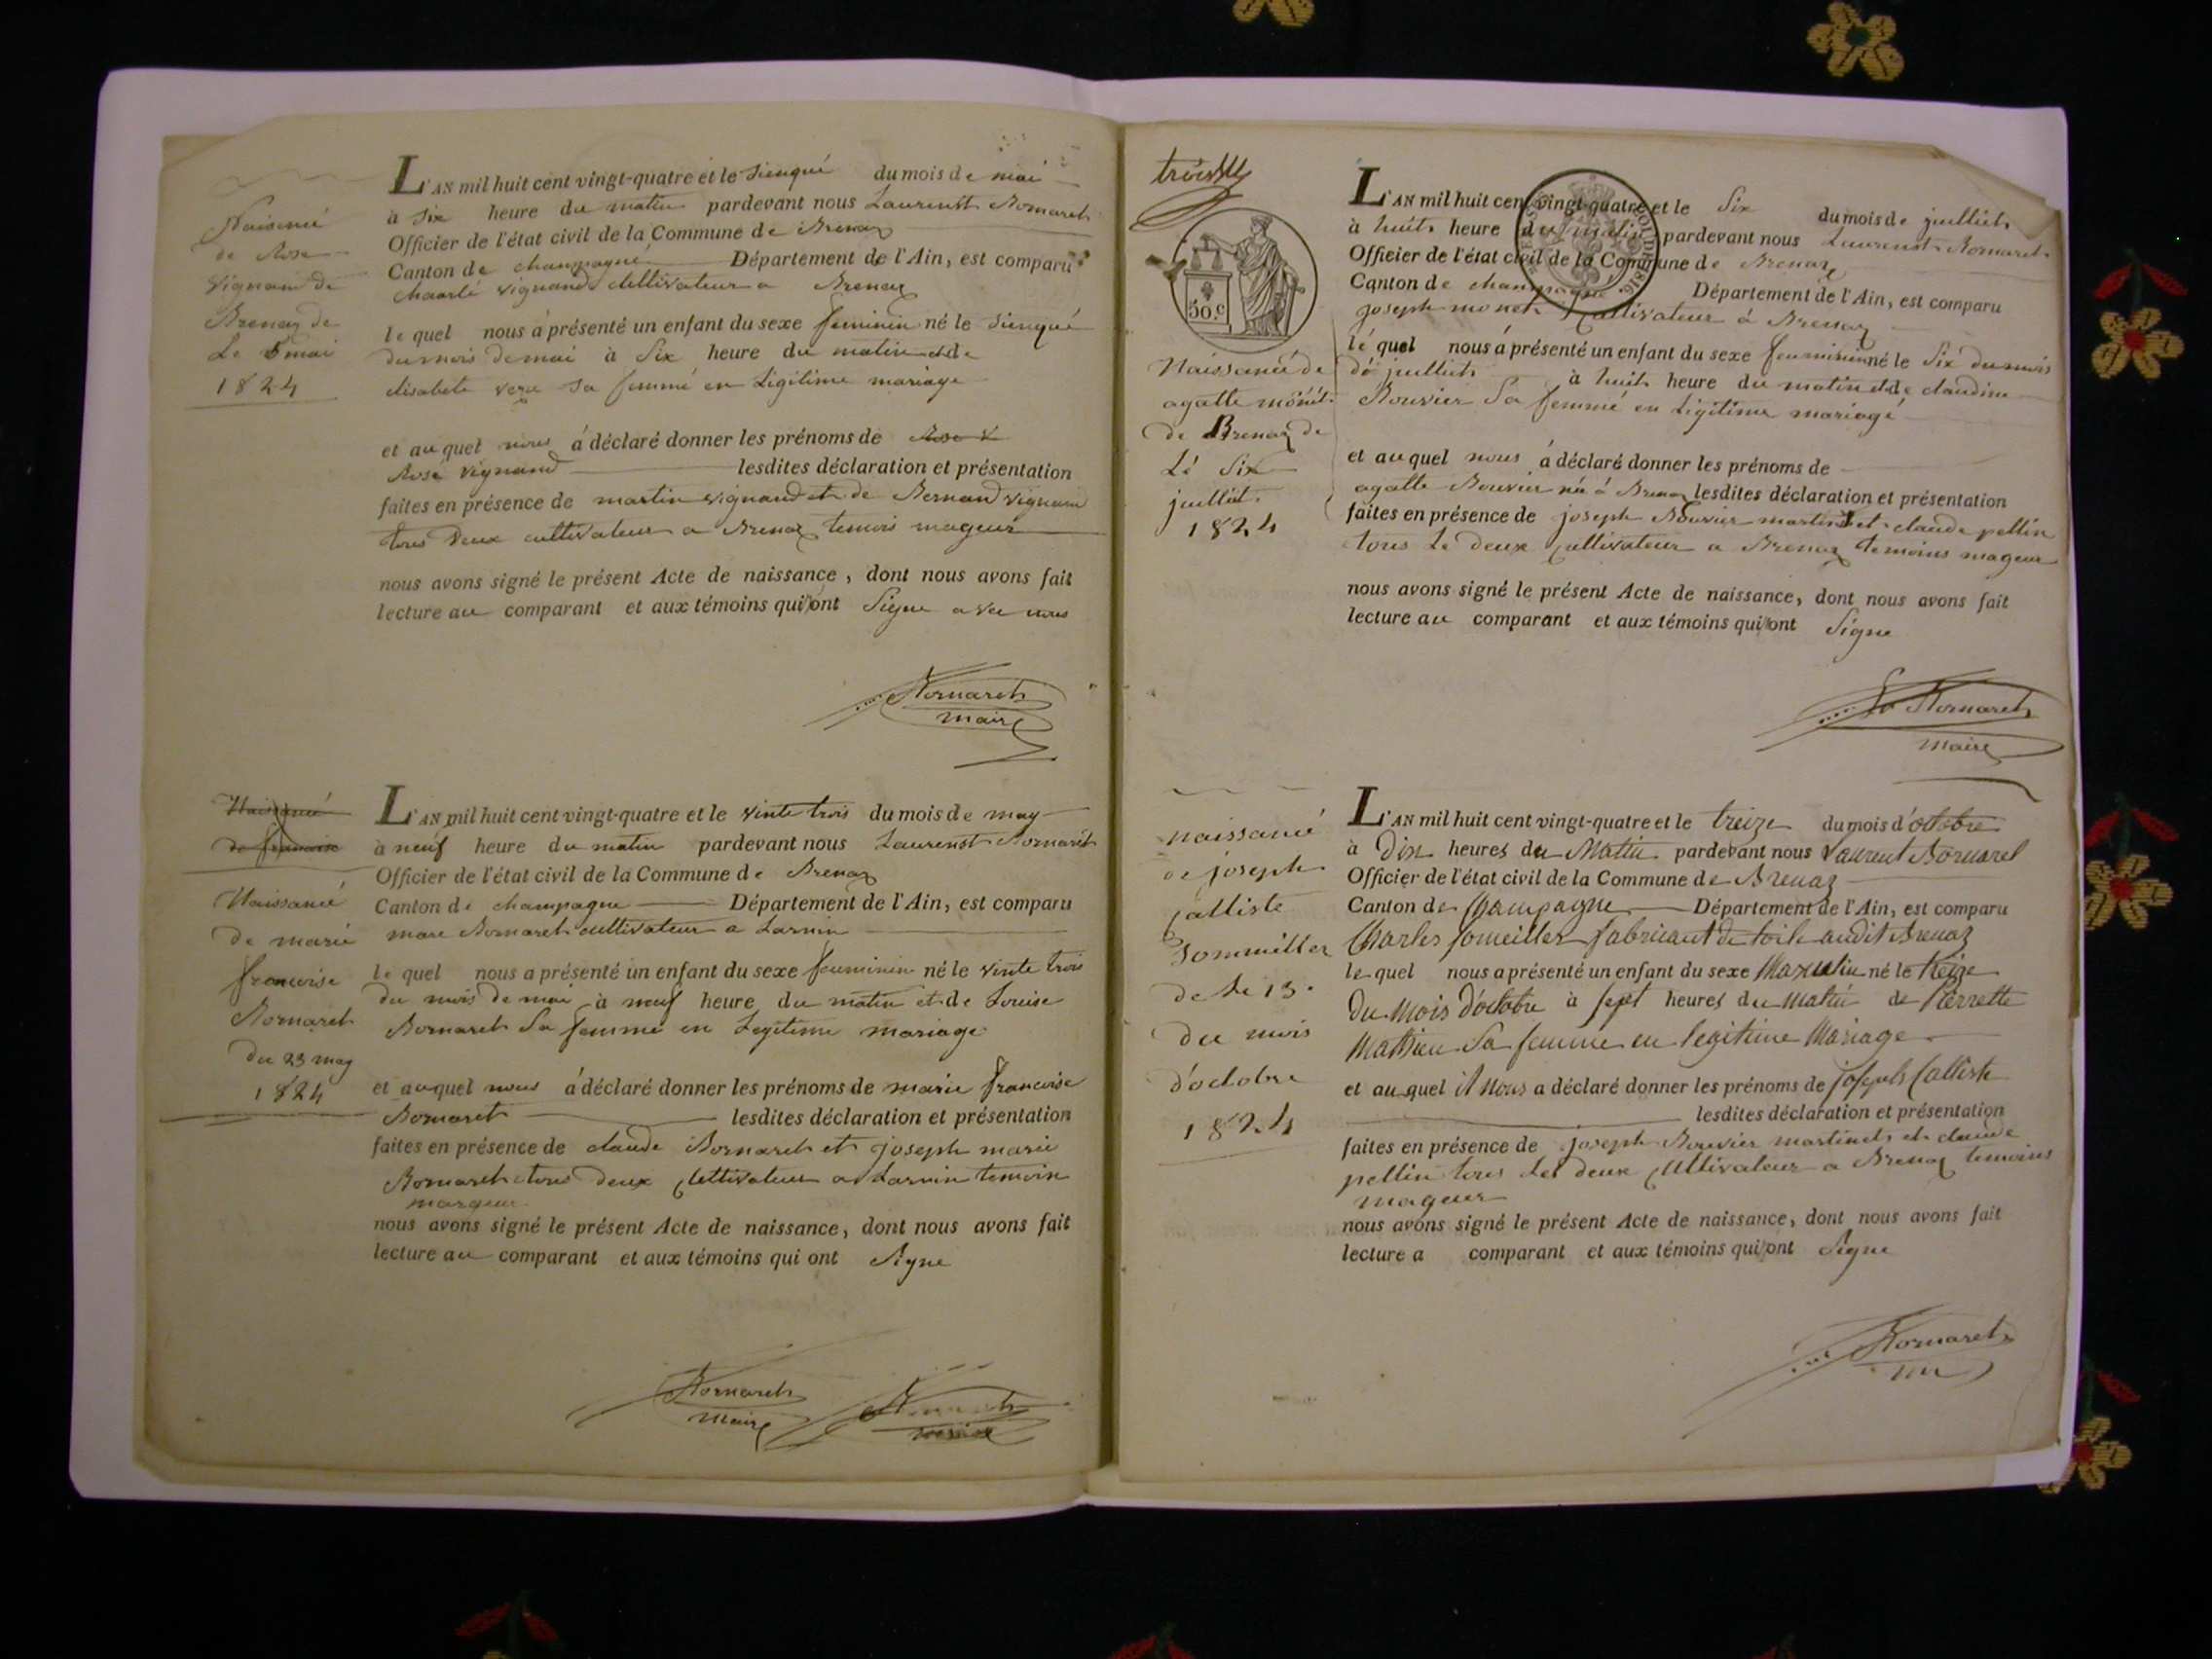 Naisencé
de Rose
Vignand de
Brenaz de
Le 5 mai
1824
L'AN mil huit cent vingt-quatre et le sienqué du mois de mai
à six heure du matin pardevant nous Laurenst Bornaret
Officier de l'état civil de la Commune de Brenaz
Canton de champagné Département de l'Ain, est comparu
chaarlé vignand cultivateur a Brenaz
le quel nous à présenté un enfant du sexe feminin né le sienqué
du mois de mai à six heure du matin et de
elisabete sa femmé en Légitime mariage
et au quel nous à déclaré donner les prénoms de Rose V
Rosé vignand lesdites déclaration et présentation
faites en présence de martin vignand et de Bernand vignand
tous deux cultivateur a Brenaz temois mageur
nous avons signé le présent Acte de naissance, dont nous avons fait
lecture au comparant et aux témoins qui ont Signe a vec nous
Bornaret
maire
Naissancé
de francoise
Naissancé
de marié
francoise
Bornaret
du 23 may
1824
L'AN mil huit cent vingt-quatre et le vinte trois du mois de may
à neuf heure du matin pardevant nous Laurenst Bornarét
Officier de l'état civil de la Commune de Brenaz
Canton de champagne Département de l'Ain, est comparu
marc Bornaret cultivateur a Larnin
le quel nous a présenté un enfant du sexe feuminin né le vinte trois
du mois de mai à neuf heure du matin et de Louise
Bornaret Sa femme en Legitime mariage
et au quel nous à déclaré donner les prénoms de marie francoise
Bornaret lesdites déclaration et présentation
faites en présence de claude Bornaret et joseph marie
Bornaret tous deux cultivateur a Larnin temoin
margeur
nous avons signé le présent Acte de naissance, dont nous avons fait
lecture au comparant et aux témoins qui ont Signe
Bornaret
maire
trois
50.c
Naissancé de
agatte monét
de Brenaz de
Lé Six
juillét
1824
L'AN mil huit cent vingt-quatre et le Six du mois de juilliet
à huit heure du matin pardevant nous Laurenst Bornaret
Officier de l'état civil de la Commune de Brenaz
Canton de champagne Département de l'Ain, est comparu
joseph monet cultivateur á Brenaz
lé quel nous á présenté un enfant du sexe feuminin né le Six du mois
dé juilliet à huit heure du matin et de claudine
Bouvier Sa femmé en Légitime mariagé
et au quel nous á déclaré donner les prénoms de
agatte Bouvier né á Brenaz lesdites déclaration et présentation
faites en présence de joseph Bouvier martinet et claude pellin
tous Le deux cultivateur a Brenaz temoins mageur
nous avons signé le présent Acte de naissance, dont nous avons fait
lecture au comparant et aux témoins qui ont Signe
Bornaret
maire
naissancé
de joseph
calliste
Sommiller
de Le 13
du mois
d'octobre
1824
L'AN mil huit cent vingt-quatre et le treize du mois d'octobre
à Dix heures du Matin pardevant nous Laurent Bornaret
Officier de l'état civil de la Commune de Brenaz
Canton de Champagne Département de l'Ain, est comparu
Charles Someiller fabricant de toile audit Brenaz
le quel nous a présenté un enfant du sexe Masculin né le treize
Du Mois d'octobre à Sept heures du Matin de Pierrette
Mathieu Sa femme en legitime Mariage
et au quel il nous a déclaré donner les prénoms de joseph Calliste
lesdites déclaration et présentation
faites en présence de joseph Bouvier martinet et claude
pellin tous Les deux cultivateur a Brenaz temoins
mageur
nous avons signé le présent Acte de naissance, dont nous avons fait
lecture a comparant et aux témoins qui ont Signe
Bornaret